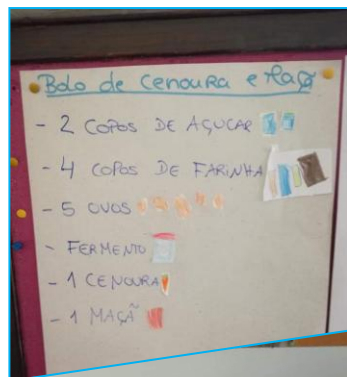 Bolo de Cenoura e Maçã
- 2 COPOS DE AÇUCAR
- 4 COPOS DE FARINHA
- 5 OVOS
- FERMENTO
- 1 CENOURA
- 1 MAÇÃ